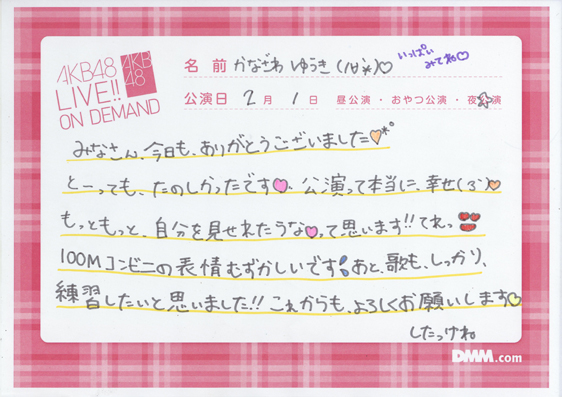 AKB48
LIVE!!
ON DEMAND
AKB
48
名前 かなざわ ゆうき (18才)♡
いっぱい
みてね♡
公演日 2月 1日 昼公演・おやつ公演・夜☆演
みなさん、今日も、ありがとうございました♡
とーっても、たのしかったです♡、公演って本当に、幸せ(3`)♡
もっともっと、自分を見せれたらな♡って思います!!てれっ
100Mコンビニの表情むずかしいです あと、歌も、しっかり、
練習したいと思いました!!これからも、よろしくお願いします♡
したっけね
DMM.com